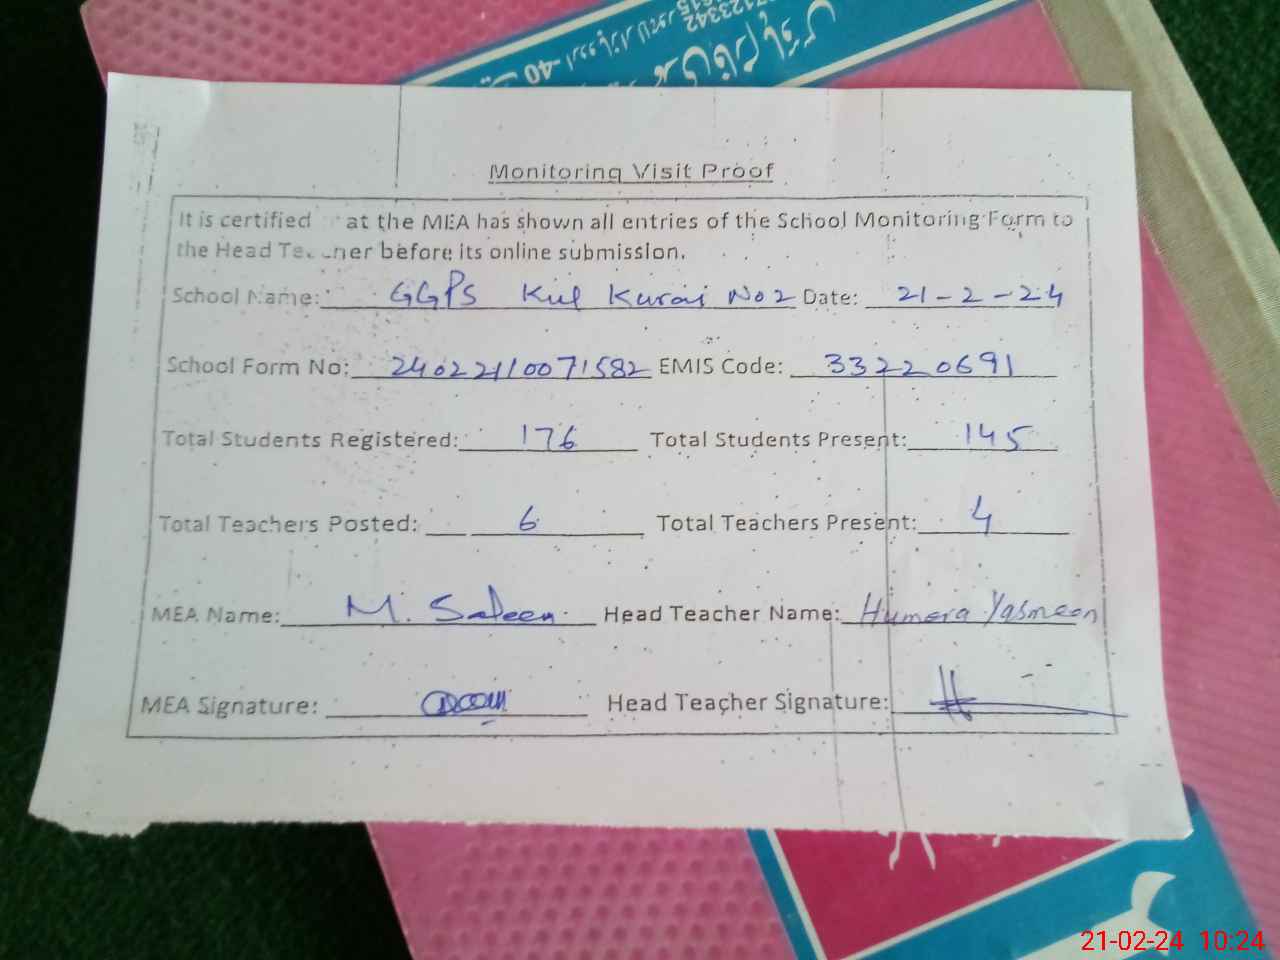 40-
123342
Monitoring Visit Proof
It is certified at the MEA has shown all entries of the School Monitoring Form to
the Head Teacher before its online submission.
School Name: GGPS Kul Kurai No 2 Date: 21-2-24
School Form No: 24022110071582 EMIS Code: 33220691
Total Students Registered: 176 Total Students Present: 145
Total Teachers Posted: 6 Total Teachers Present: 4
MEA Name: M. Saleem Head Teacher Name: Humera Yasmeen
MEA Signature: Head Teacher Signature:
21-02-24 10:24